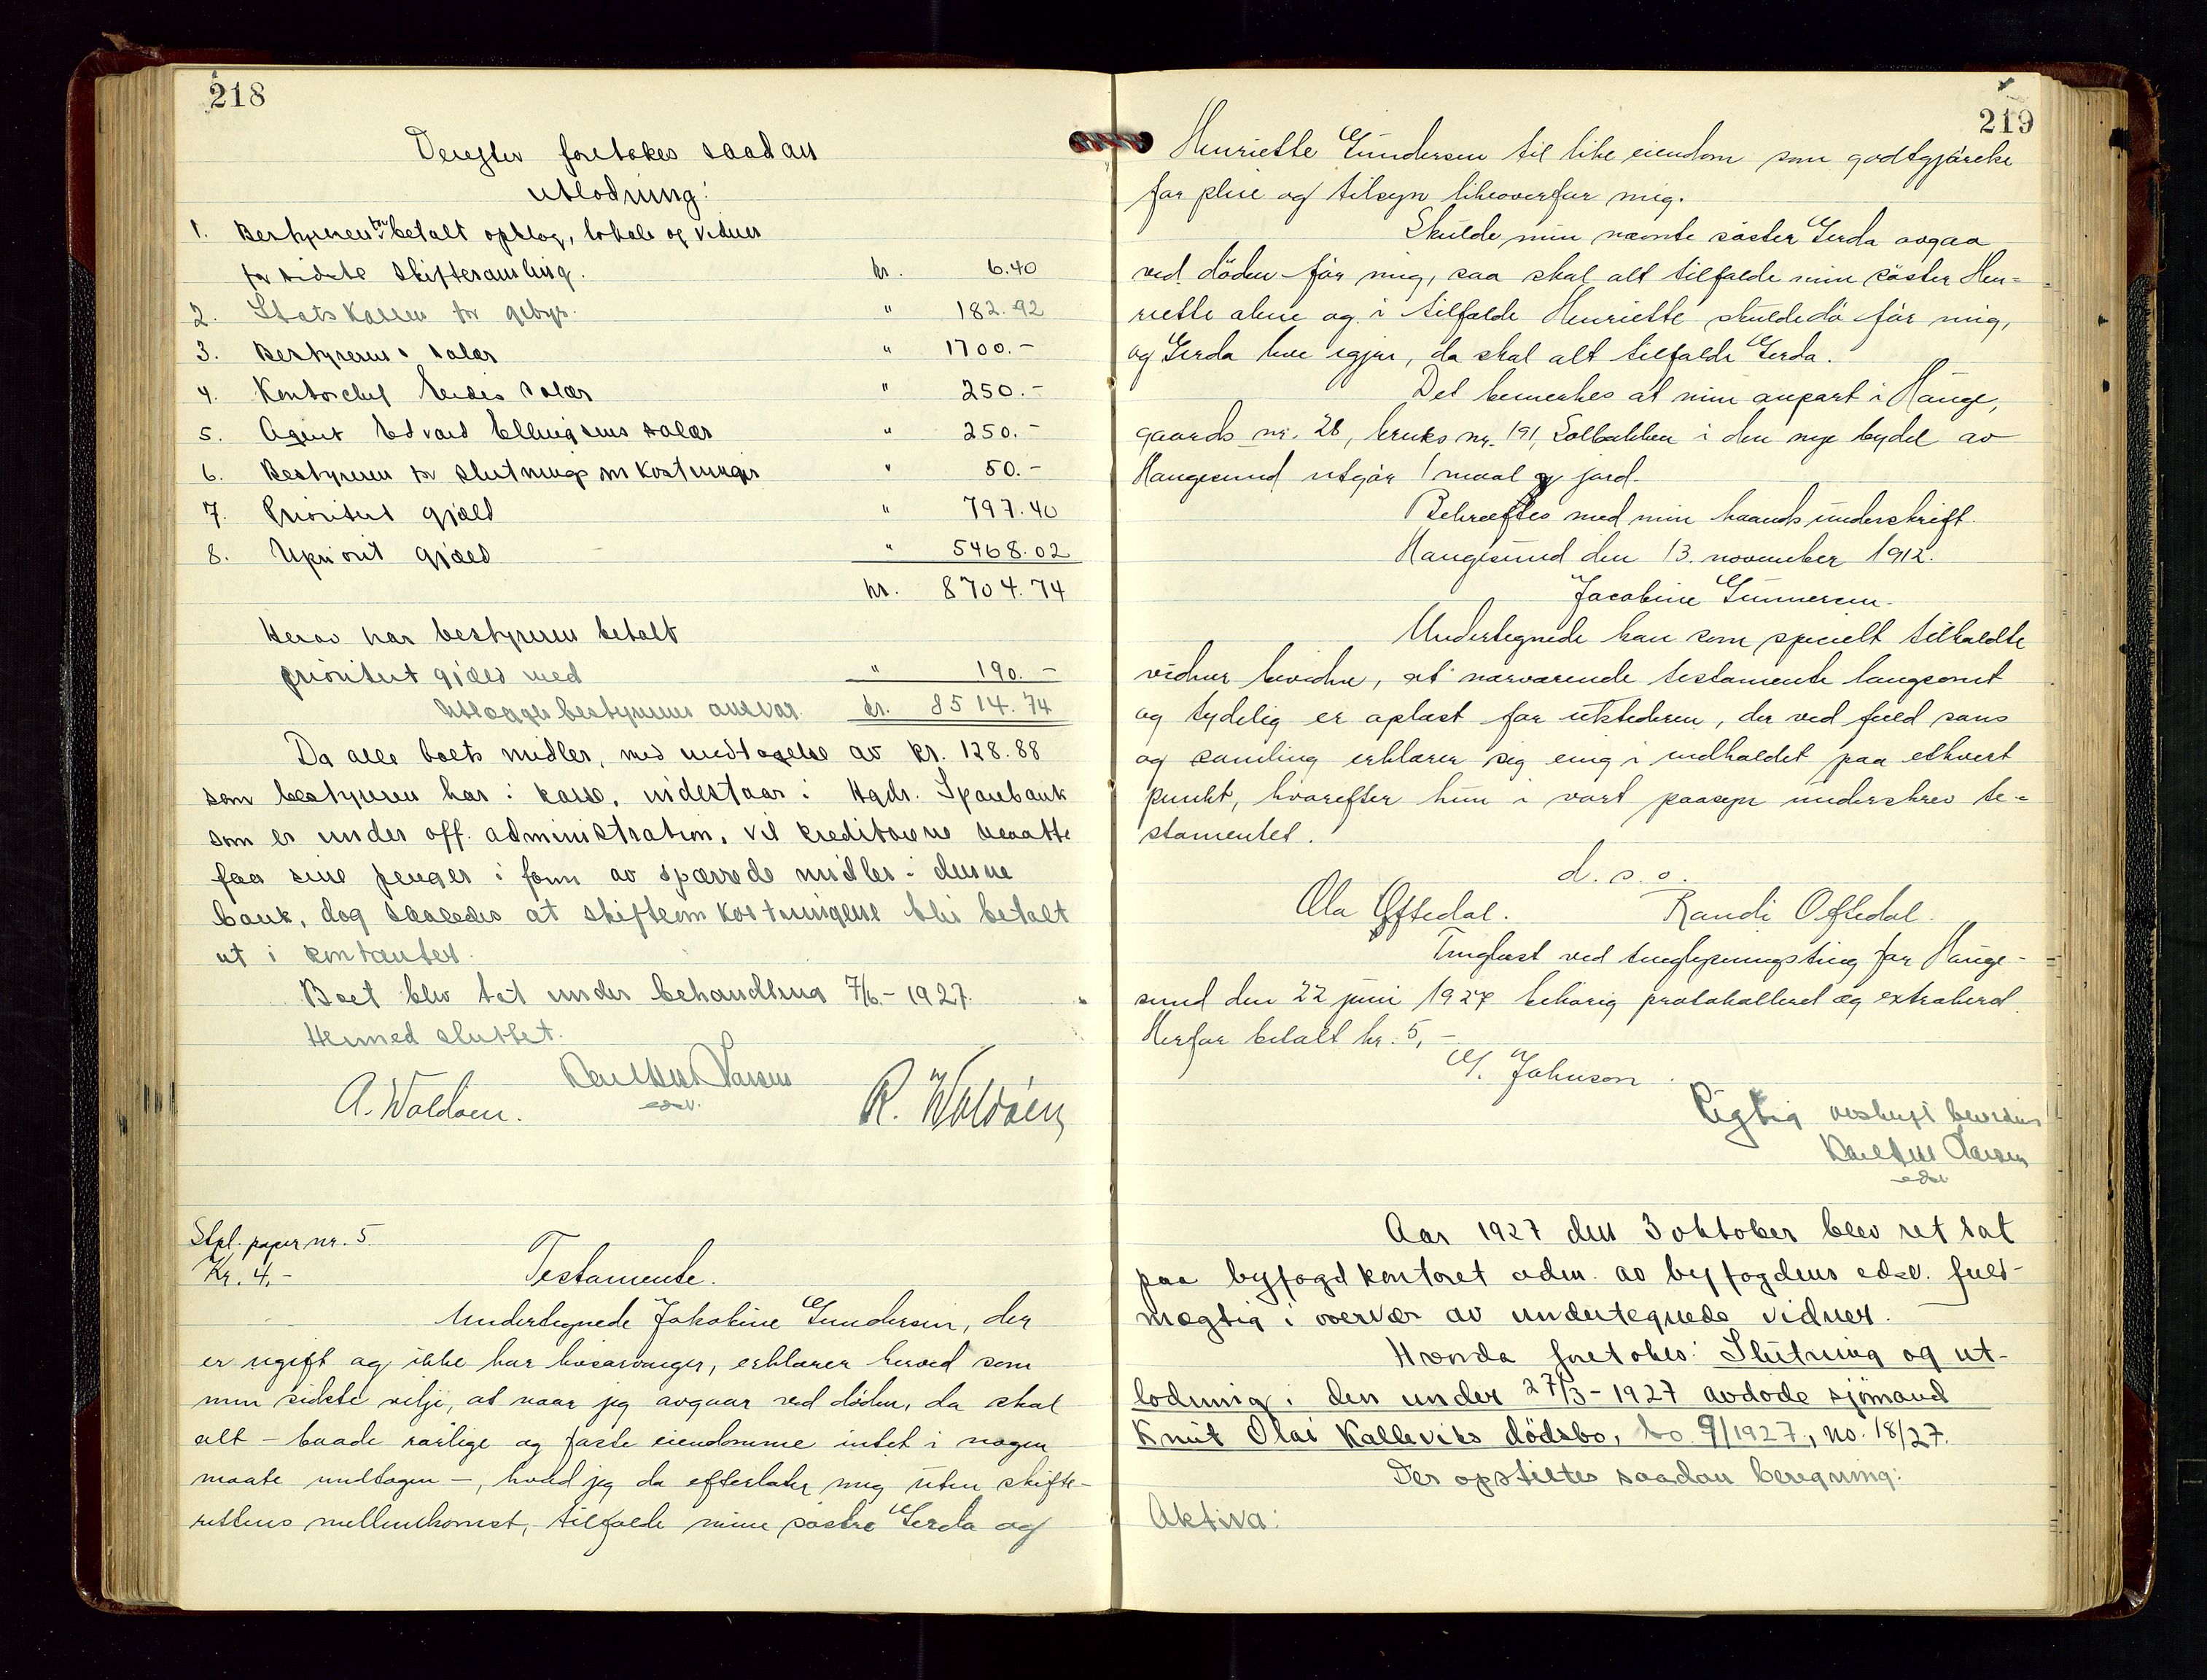 218
Derefter foretokes saadan
utlodning:
1. Bestyreren for betalt opslag, lokale og vidner
for sidste skiftesamling. kr. 6.40
2. Statskassen for gebyr. " 182.92
3. Bestyrerens salær " 1700.-
4. Kontorchef salær " 250.-
5. Agent Edvard Ellingsens salær " 250.-
6. Bestyreren for slutningsomkostninger " 50.-
7. Prioritert gjæld " 797.40
8. Upriorit gjæld " 5468.02
kr. 8704.74
Herav har bestyreren betalt
prioritert gjæld med " 190.-
bestyrerens ansvar kr. 8514.74
Da alle boets midler, med undtagelse av kr. 128.88
som bestyreren har i kasse, indestaar i Hgds. Sparebank
som er under off. administration, vil kreditorene maatte
faa sine penger i form av spærrede midler i denne
bank, dog saaledes at skifteomkostningene blir betalt
ut i kontanter.
Boet blev tat under behandling 7/6- 1927.
Hermed sluttet.
A. Waldøen. Larsen R. Waldøen
edsv.
Stpl. papir nr. 5.
Kr. 4,-
Testamente.
Undertegnede Jakobine Gundersen, der
er ugift og ikke har livsarvinger, erklærer herved som
min sidste vilje, at naar jeg avgaar ved døden, da skal
alt – baade rørlige og faste eiendomme intet i nogen
maate undtagen –, hvad jeg da efterlater mig uten skifte-
rettens mellemkomst, tilfalde mine søstre Gerda og
219
Henriette Gundersen til like eiendom som godtgjørelse
for pleie og tilsyn likeoverfor mig.
Skulde min nævnte søster Gerda avgaa
ved døden før mig, saa skal alt tilfalde min søster Hen=
riette alene og i tilfælde Henriette skulde dø før mig,
og Gerda leve igjen, da skal alt tilfalde Gerda.
Det bemerkes at min anpart i Hauge,
gaards nr. 28, bruks nr. 191, Solbakken i den nye bydel av
Haugesund utgjør 1 maal jord.
Bekræftes med min haands underskrift.
Haugesund den 13. november 1912.
Jacobine Gunnersen.
Undertegnede kan som specielt tilkaldte
vidner bevidne, at nærværende testamente langsomt
og tydelig er oplæst for utstederen, der ved fuld sans
og samling erklærer sig enig i indholdet paa ethvert
punkt, hvorefter hun i vort paasyn underskrev te=
stamentet.
d. s. o.
Ola Oftedal. Randi Oftedal.
Tinglæst ved tinglysningsting for Hauge-
sund den 22 juni 1927 behørig protokolleret og extraherd.
Herfor betalt kr. 5,-
G. Johnson.
Rigtig avskrift bevidner
Larsen
edsv
Aar 1927 den 3 oktober blev ret sat
paa byfogdkontoret adm. av byfogdens edsv. fuld-
mægtig i overvær av undertegnede vidner.
Hvorda foretokes: Slutning og ut-
lodning i den under 27/3- 1927 avdøde sjømand
Knut Olai Kalleviks dødsbo, bo 9/1927, no. 18/27.
Der opstilles saadan beregning:
Aktiva: